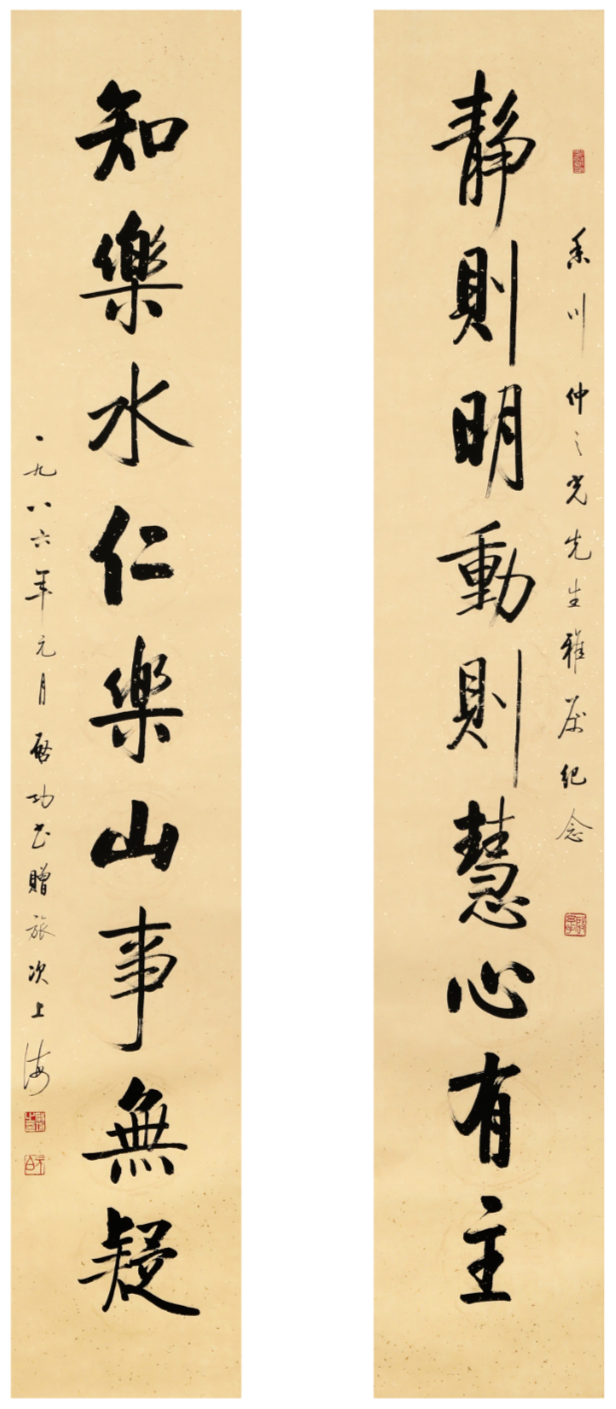 香川仲之光先生雅属紀念
静則明動則慧心有主
知樂水仁樂山事無疑
一九八六年元月啟功书贈旅次上海